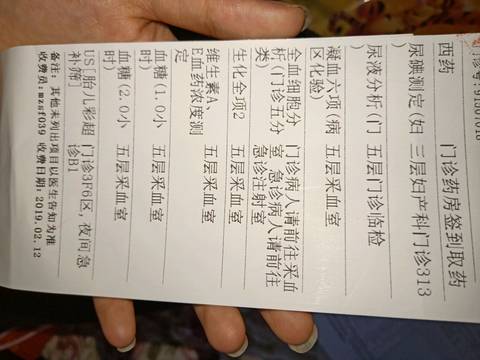 西药 门诊药房签到取药
尿碘测定(妇 三层妇产科门诊313
)
尿液分析(门 五层门诊临检
)
凝血六项(病 五层采血室
区化验)
全血细胞分 门诊病人请前往采血
析(门诊五分 室,急诊病人请前往
类) 急诊注射室
生化全项2 五层采血室
维生素A 五层采血室
E血药浓度测
定
血糖(1.0小 五层采血室
时)
血糖(2.0小 五层采血室
时)
US[胎儿彩超 门诊3F6区,夜间急
补筛] 诊B1
备注:其他未列出项目以医生告知为准
收费员:mzsf099 收费日期:2019.02.12